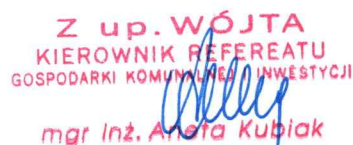 Z up. WÓJTA
KIEROWNIK REFERATU
GOSPODARKI KOMUNALNEJ I INWESTYCJI
mgr inż. Aneta Kubiak